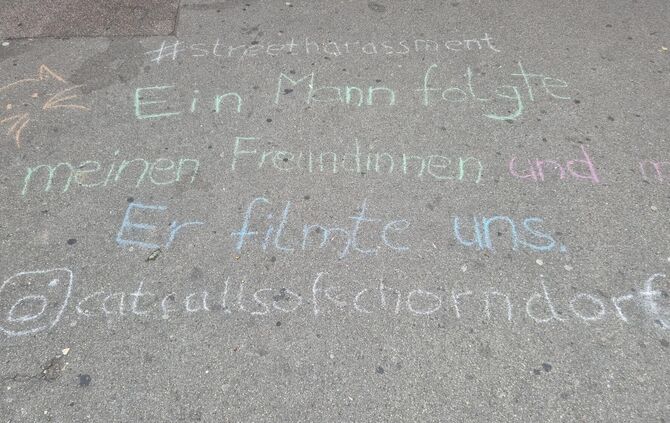 #streetharassment
Ein Mann folgte
meinen Freundinnen und m
Er filmte uns.
@catcallsofschorndorf